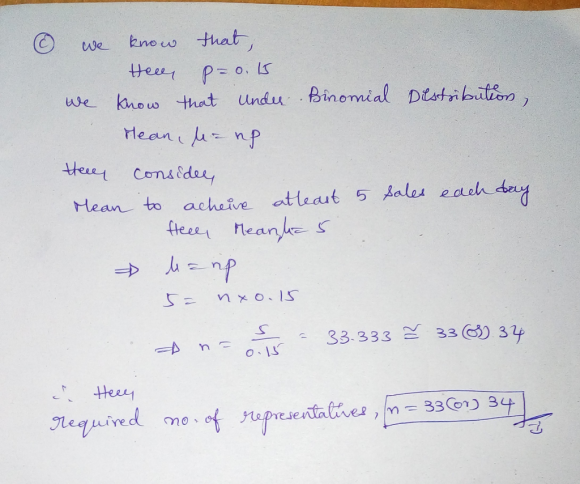 (c) we know that,
Here, p = 0.15
we know that under Binomial Distribution,
Mean, μ = np
Here consider,
Mean to acheive atleast 5 sales each day
Here, Mean, μ = 5
⇒ μ = np
5 = n x 0.15
⇒ n = 5/0.15 = 33.333 ≅ 33 (or) 34
∴ Here,
required no. of representatives, n = 33 (or) 34